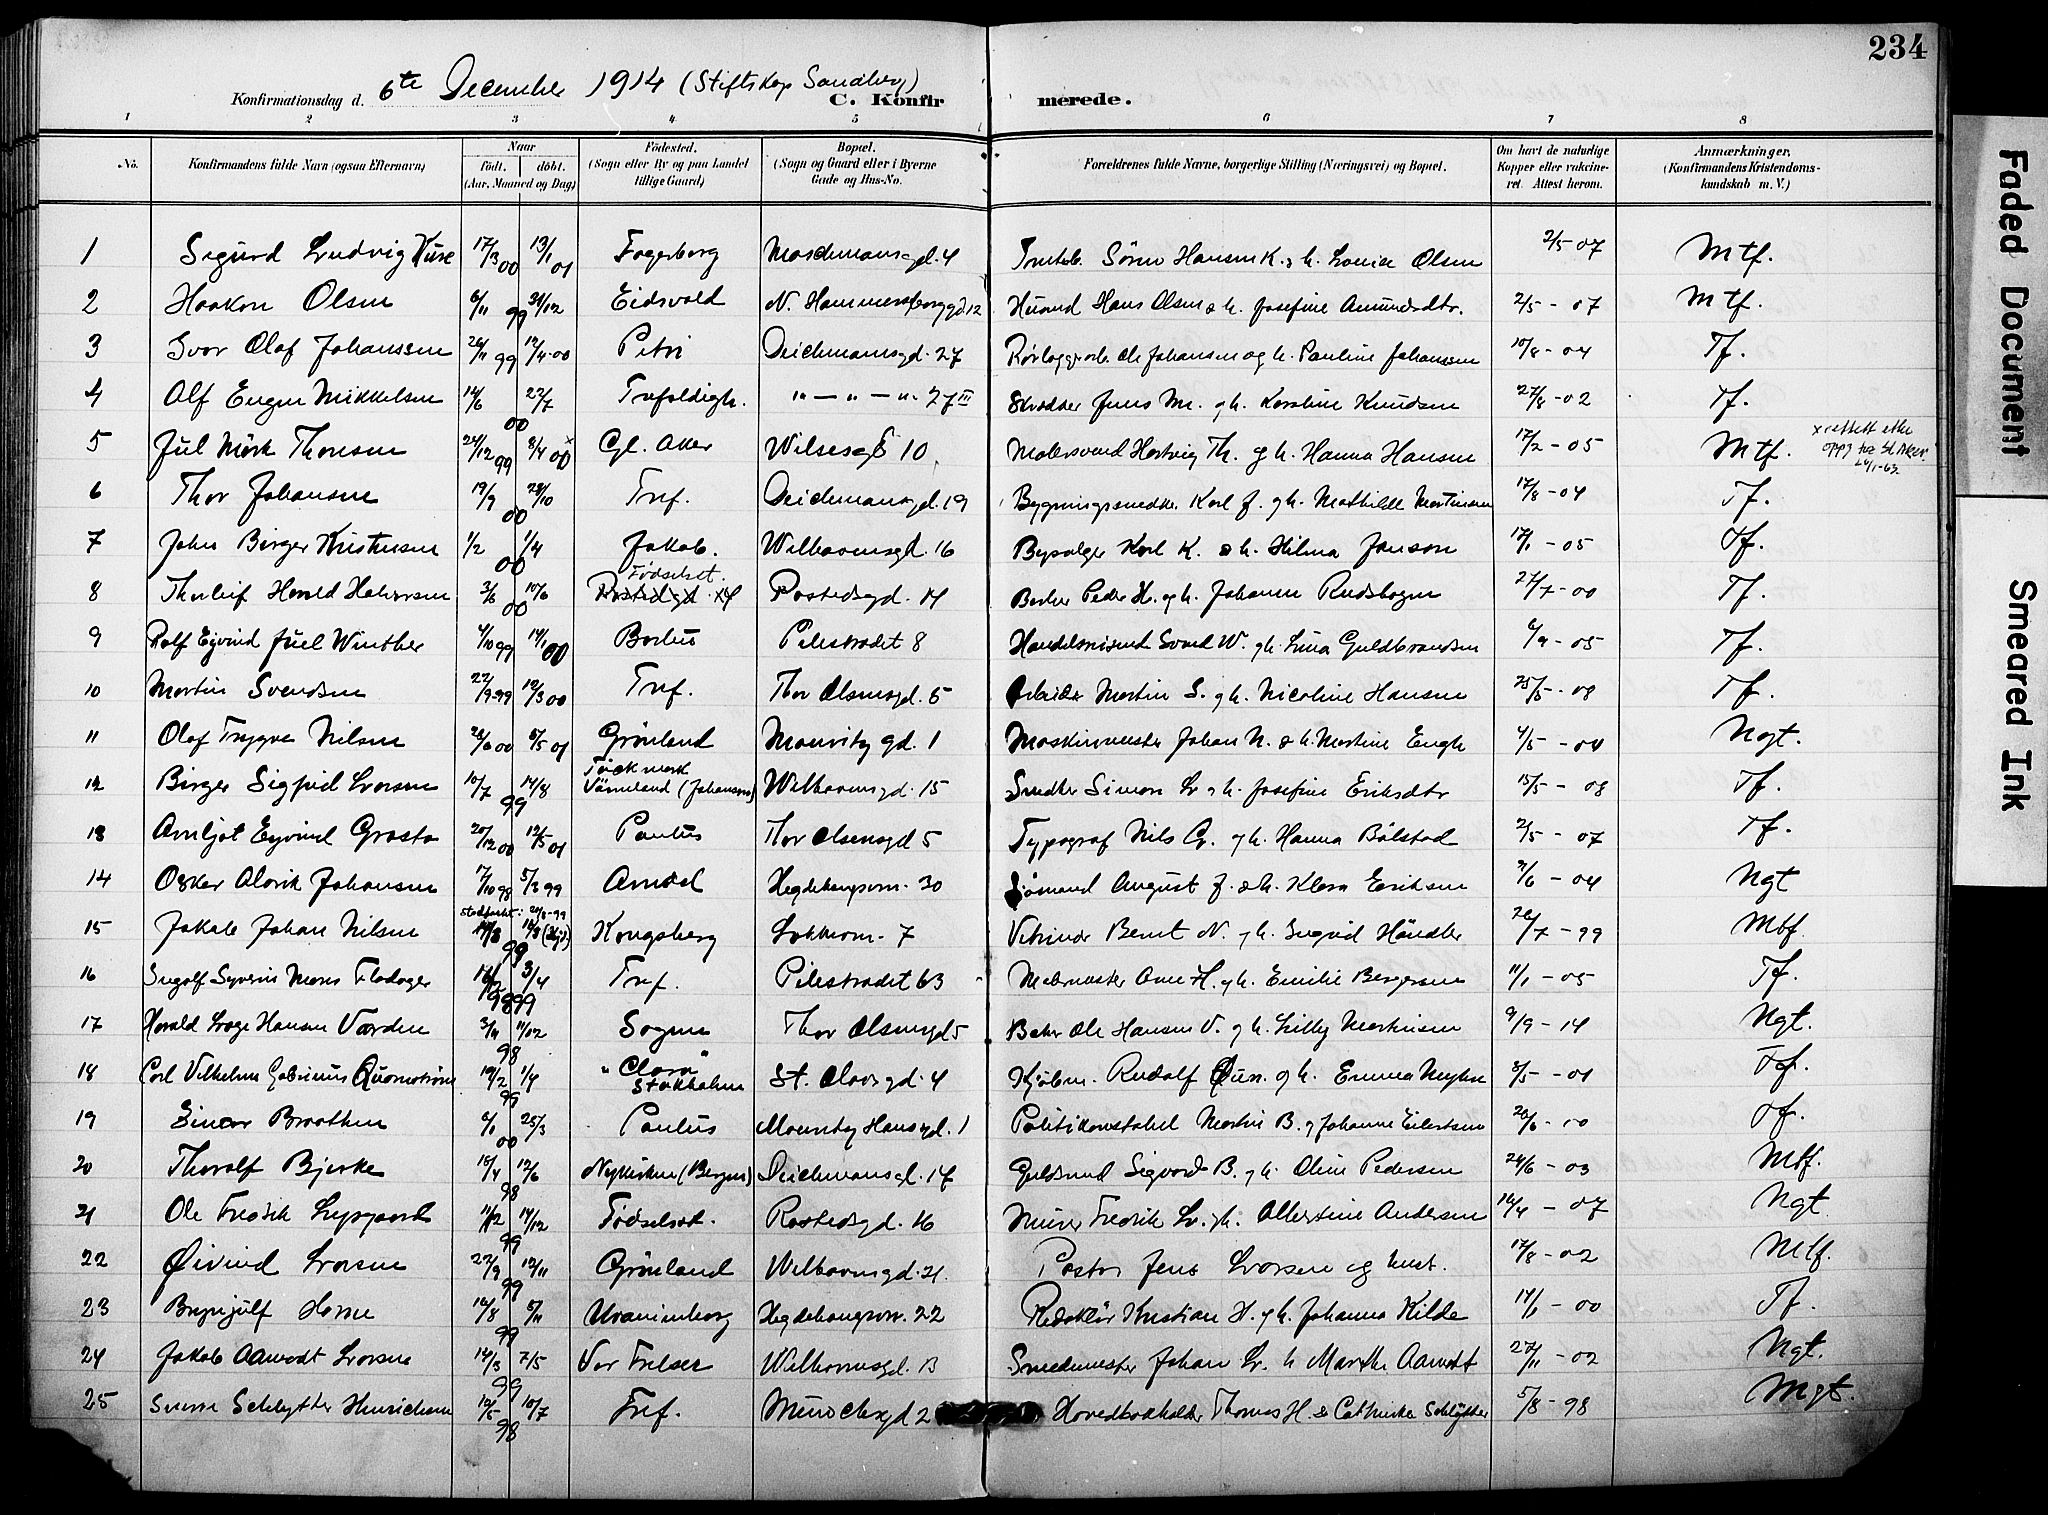 234
6te December 1914 (Stiftskap Sandberg)
Konfirmationsdag d. C. Konfirmerede.
1 2 3 4 5 6 7 8
No. Konfirmandens fulde Navn (ogsaa Efternavn) Naar Födt. döbt. (Aar, Maaned og Dag) Födested. (Sogn eller By og paa Landet tillige Gaard) Bopæl. (Sogn og Gaard eller i Byerne Gade og Hus-No. Forældrenes fulde Navne, borgerlige Stilling (Næringsvei) og Bopæl. Om havt de naturlige Kopper eller vakcineret. Attest herom. Anmærkninger. (Konfirmandens Kristendomskundskab m. V.)
1 Sigurd Ludvig Kure 17/3 00 13/1 01 Fagerborg 4 Sören Hansen K. h. Lovise Olsen 2/5 07 Mtf.
2 Haakon Olsen 6/11 99 31/12 Eidsvold N. Hammersborggd 12 Husmd Hans Olsen & h. Josefine Amundsdtr. 2/5 - 07 Mtf.
3 Ivar Olaf Johanssen 26/11 99 12/4 00 Petri Deichmansgd. 27 Ole Johansen og h. Pauline Johanssen 10/8 - 04 Tf.
4 Alf Eugen Mikkelsen 14/6 00 22/7 Trefoldigh. " — " — " 27 III Skrædder Jens M. og h. Karoline Knudsen 27/8 - 02 Tf.
5 Jul Mörk Thoresen 24/12 99 8/4 00 x Gl. Aker Wilsesgd 10 Malersvend Hartvig Th. og h. Hanna Hansen 17/2 - 05 Mtf. x rettet etter oppg fra Gl. Aker
6 Thor Johansen 19/9 00 28/10 Tref. Deichmansgd. 19 Bygningssnedker Karl J. og h. Mathilde Martinsen 17/8 - 04 Tf.
7 John Birger Kristensen 1/2 00 1/4 Jakob. Welhavensgd. 16 Karl K. & h. Hilma Janson 17/1 - 05 Tf.
8 Thorleif Harald Halvorsen 3/6 00 10/6 Födselsst. Rostedsgd. 14 Peder H. og h. Johanne Rudshagen 27/7 - 00 Tf.
9 Rolf Eyvind Juel Winther 4/10 99 14/1 00 Pilestrædet 8 Handelsreisende Svend W. og h. Lina Guldbrandsen 6/9 - 05 Tf.
10 Martin Svendsen 22/9 99 12/3 00 Tref. Thor Olsensgd. 5 Arbeider Martin S. og h. Nicoline Hansen 25/5 - 08 Tf.
11 Olaf Trygve Nilsen 5/5 01 Grönland gd. 1 Maskinmester Johan N. & h. Martine Engh 4/5 - 04 Ngt.
12 Birger Sigfrid Larsen 10/7 99 14/8 Töckmark Värmland (Johansson) Welhavensgd. 15 Snedker Simon L. og h. Josefine Eriksdtr 15/5 - 08 Tf.
13 Arnljot Eyvind Grasto 20/12 00 12/5 01 Paulus Thor Olsensgd 5 Typograf Nils G. og h. Hanna Bölstad 2/5 - 07 Tf.
14 Oskar Alarik Johansen 17/10 98 5/3 99 Arndal Hegdehaugsvn. 30 Sjömand August J. & h. Klara Eriksen 3/6 - 04 Ngt
15 Jakob Johan Nilsen 99 stadfæstet: 20/8-99 Kongsberg 7 Bernt N. og h. Ingrid Händler 26/7 - 99 Mtf.
16 Ingolf Syverin Flodager 98 3/4 99 Tref. Pilestrædet 63 Arne H. og h. Emilie Bergersen 11/1 - 05 Tf.
17 Harald Hansen Varden 3/11 98 11/12 Sogne Thor Olsensgd 5 Ole Hansen V. og h. Lilly Martinsen 9/9 - 14 Ngt.
18 Carl Vilhelm Gabrinus Quarnström 19/2 99 1/4 "Clara" Stockholm St. Olavsgd. 4 Kjöbm. Rudolf Qun. og h. Emma 3/5 - 01 Tf.
19 Einar Braathen 6/1 00 25/3 Paulus gd. 1 Politikonstabel Martin B. og Johanne Eilertsen 20/6 - 00 Tf.
20 Thoralf Bjerke 15/4 98 12/6 Nykirken (Bergen) Deichmansgd. 14 Guldsmed Sigvard B. og h. Oline Pedersen 24/6 - 03 Mtf.
21 Ole Fredrik 99 14/12 Födselsst. Rostedsgd. 16 Murer Fredrik L. og h. Albertine Andersen 16/4 - 07 Ngt.
22 Øivind Larsen 22/9 99 12/11 Grönland Welhavensgd. 21. Pastor Jens Larsen og hust. 17/8 - 02 Mtf.
23 Brynjulf Horne 16/8 99 5/11 Uranienborg Hegdehaugsvn. 22 Redaktör Kristian H. og h. Johanna Kilde 14/1 - 00 Tf.
24 Jakob Aamodt Larsen 14/3 99 7/5 Vor Frelser Welhavnsgd. 13 Smedemester Johan L. h Marthe Aamodt 27/11 - 02 Ngt.
25 Schlytter Hinrichsen 12/5 98 10/7 Tref. Munchsgd 2 Hovedbokholder Thomas H. & Cathinka Schlytter 5/8 - 98 Mgt.
Faded Document
Smeared Ink